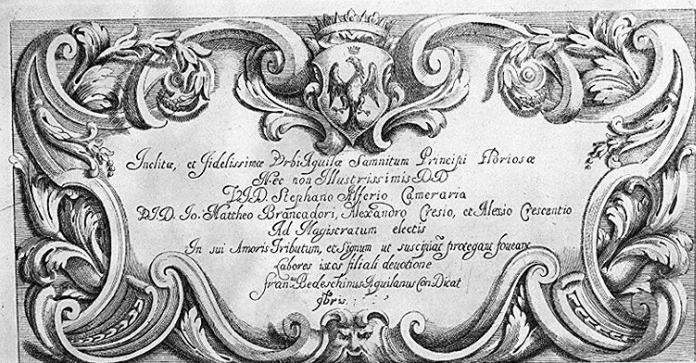 Inclitæ, et Fidelissimæ Vrbi Aquilæ Samnitum Principi Gloriosæ
Nec non Illustrissimis DD
V.I.D. Stephano Alferio Cameraria
D.I.D. Io. Mattheo Brancadori, Alexandro Cresio, et Alexio Crescentio
Ad Magistratum electis
In sui Amoris Tributum, et Signum ut suscipiāt protegant foueant
Labores istos filiali deuotione
Fran.us Bedeschinus Aquilanus Con Dicat